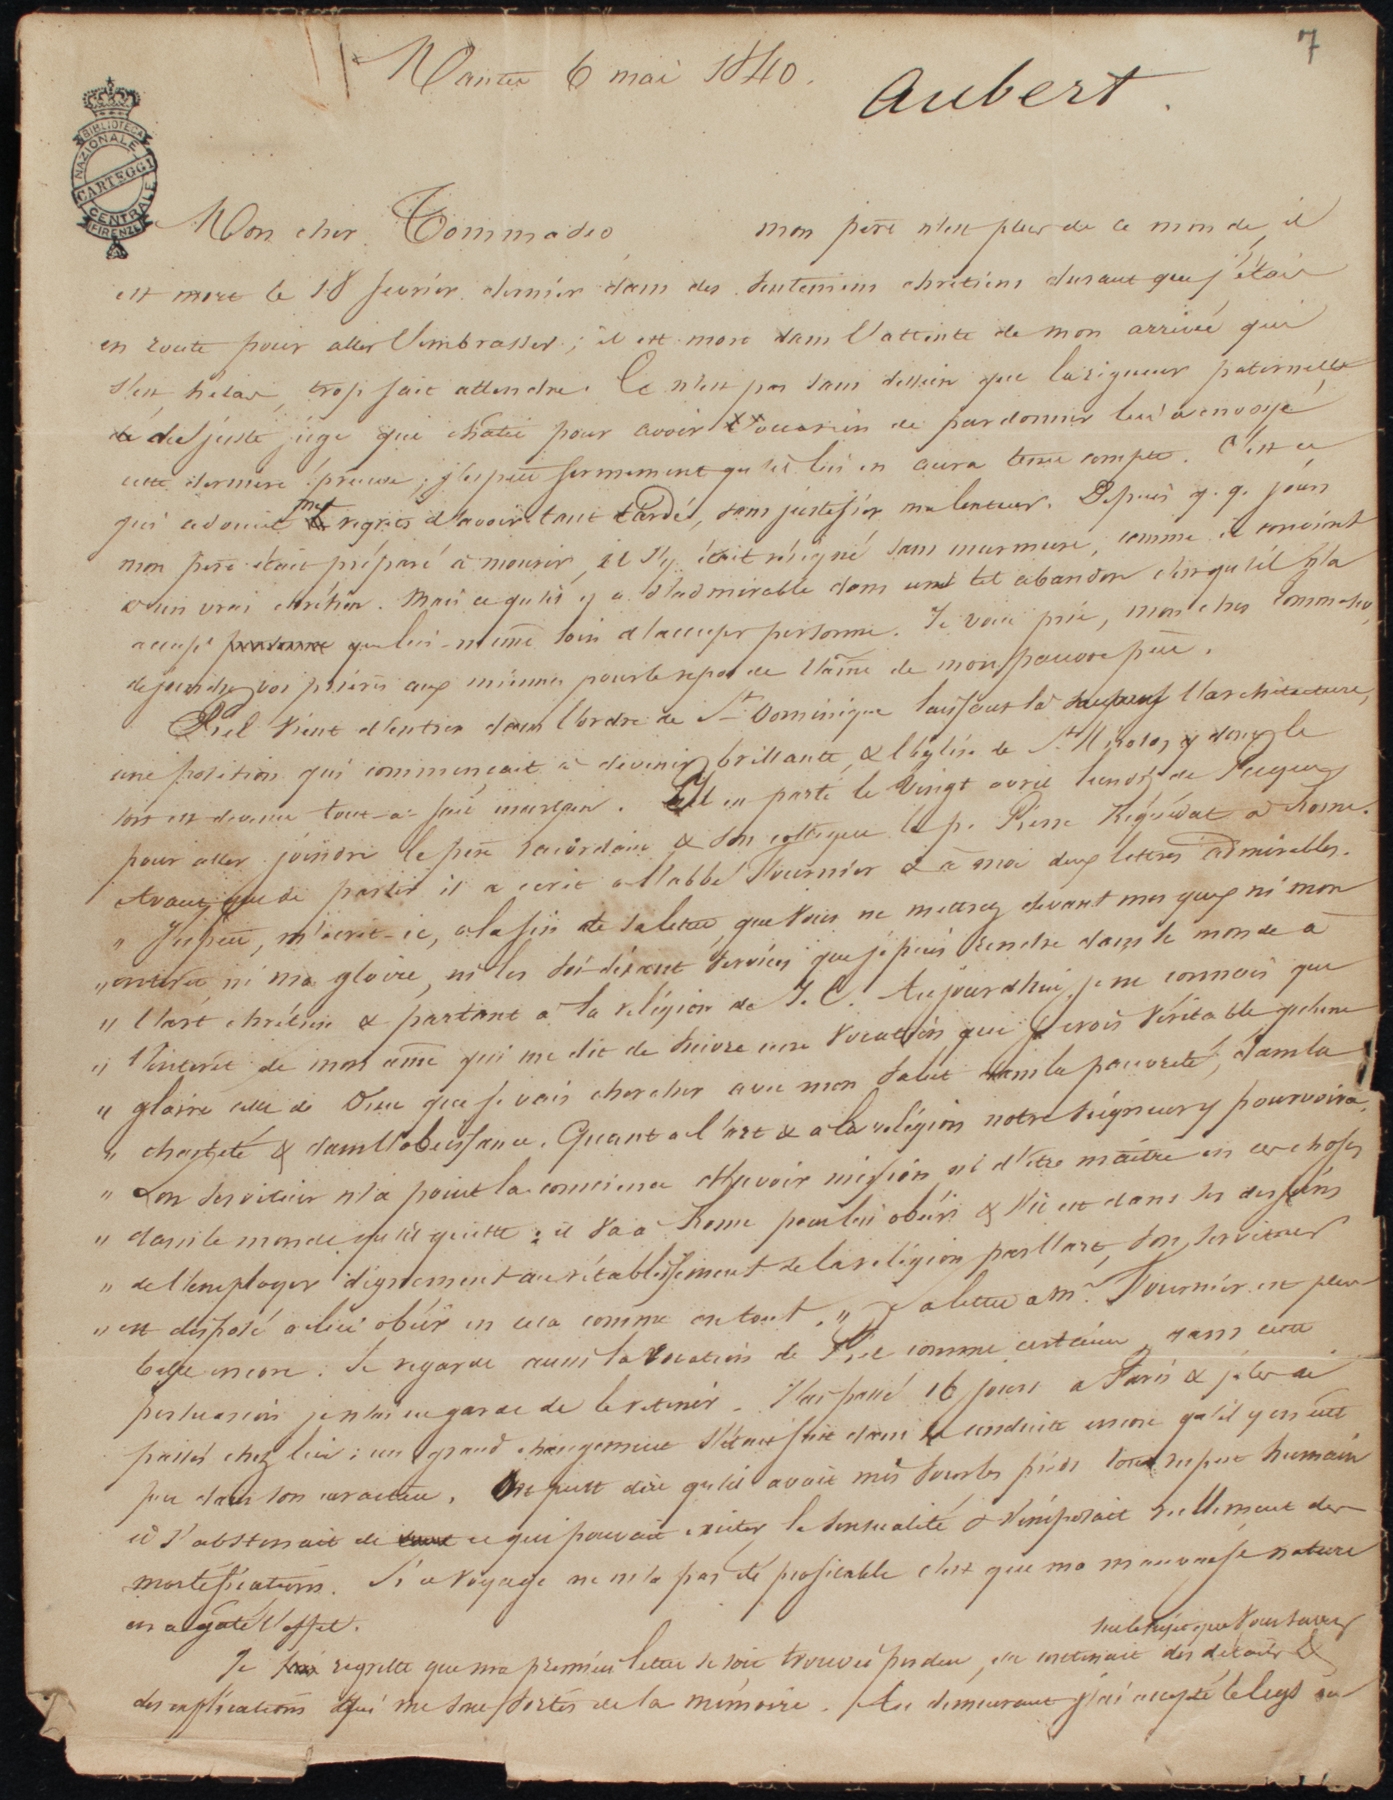 7
Nantes 6 mai 1840.
Aubert.
BIBLIOTECA
NAZIONALE
CARTEGGI
CENTRALE
FIRENZE
Mon cher Tommaseo mon père n'est plus de ce monde, il
est mort le 18 fevrier dernier dans des sentimens chrétiens durant que j'étais
en route pour aller l'embrasser ; il est mort dans l'attente de mon arrivée qui
s'est helas, trop fait attendre. Ce n'est pas sans dessein que la rigueur paternelle
du juste juge qui chatie pour avoir l'occasion de pardonner lui a envoyé
cette derniere épreuve ; j'espère fermement qu'il lui en aura tenu compte. C'est ce
qui adoucit mes regrets d'avoir tant tardé, sans justifier ma lenteur. Depuis q. q. jours
mon père était préparé à mourir, il s'y était résigné sans murmure, comme il convient
à un vrai chrétien. Mais ce qu'il y a d'admirable dans un tel abandon c'est qu'il n'a
accusé personne que lui-même loin d'accuser personne. Je vous prie, mon cher Tommaseo,
de joindre vos prières aux miennes pour le repos de l'âme de mon pauvre père.
Piel vient d'entrer dans l'ordre de St Dominique laissant là l'architecture,
une position qui commençait à devenir brillante, & l'église de St Nicolas y dont le
sort est devenu tout-à-fait incertain. Il est parti le vingt avril lundi de Pâques
pour aller joindre le père Lacordaire & son collegue le p. Pierre Réquédat à Rome.
Avant que de partir il a écrit à l'abbé Fournier & à moi deux lettres admirables.
" J'espère, m'écrit-il, à la fin de sa lettre, que vous ne mettrez devant mes yeux ni mon
" intérêt ni ma gloire, ni les soi-disant services que je puis rendre dans le monde à
" l'art chrétien & partant à la religion de J. C. Aujourd'hui, je ne connais que
" l'intérêt de mon âme qui me dit de suivre une vocation que je crois véritable qu'une
" gloire celle de Dieu que je vais chercher avec mon salut dans la pauvreté, dans la
" chasteté & dans l'obéissance. Quant à l'art & à la religion notre Seigneur y pourvoira.
" Son serviteur n'a point la conscience d'avoir mission ni d'être maître en ces choses
" dans le monde qu'il quitte : il va à Rome pour lui obéir & s'il est dans ses desseins
" de l'employer dignement au rétablissement de la religion par l'art, son serviteur
" est disposé à lui obéir en cela comme en tout. " Sa lettre à Mr Fournier est plus
belle encore. Je regarde aussi la vocation de Piel comme certaine, dans cette
persuasion je n'ai eu garde de le retenir. J'ai passé 16 jours à Paris & je les ai
passés chez lui : un grand changement s'était fait dans sa conduite encore qu'il y en eût
peu dans son caractère. On peut dire qu'il avait mis sous les pieds tout respect humain
il s'abstenait de ce qui pouvait exciter la sensualité & s'imposait réellement des
mortifications. Si ce voyage ne m'a pas été profitable c'est que ma mauvaise nature
en a gâté l'effet.
sur le sujet que vous savez
Je regrette que ma première lettre se soit trouvée perdue, elle contenait des détails &
des explications qui me sont sortis de la mémoire. Au demeurant j'ai accepté le legs